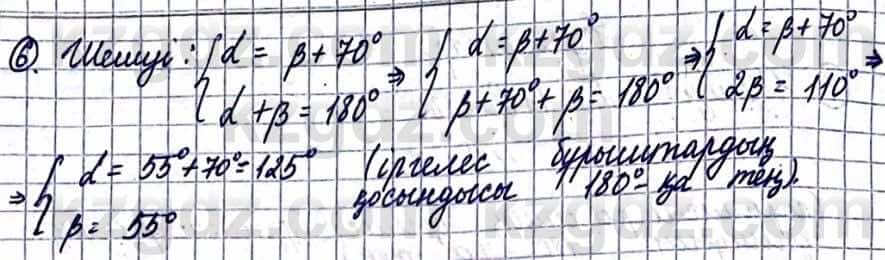 6. Шешуі: { α = β + 70° ⇒ { α = β + 70° ⇒ { α = β + 70° ⇒
α + β = 180° β + 70° + β = 180° 2β = 110°
⇒ { α = 55° + 70° = 125° (іргелес бұрыштардың
β = 55° қосындысы 180° - қа тең).
kzgdz.com